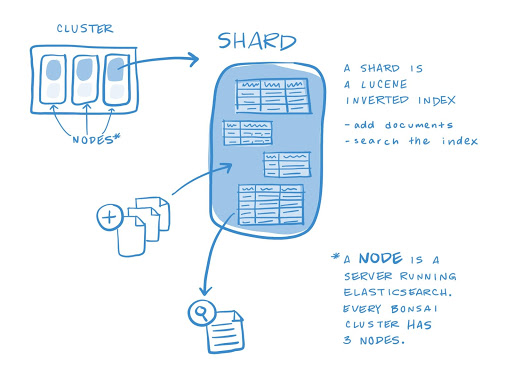 CLUSTER
NODES*
SHARD
A SHARD IS
A LUCENE
INVERTED INDEX
- add documents
- search the index
* A NODE IS A
SERVER RUNNING
ELASTICSEARCH.
EVERY BONSAI
CLUSTER HAS
3 NODES.